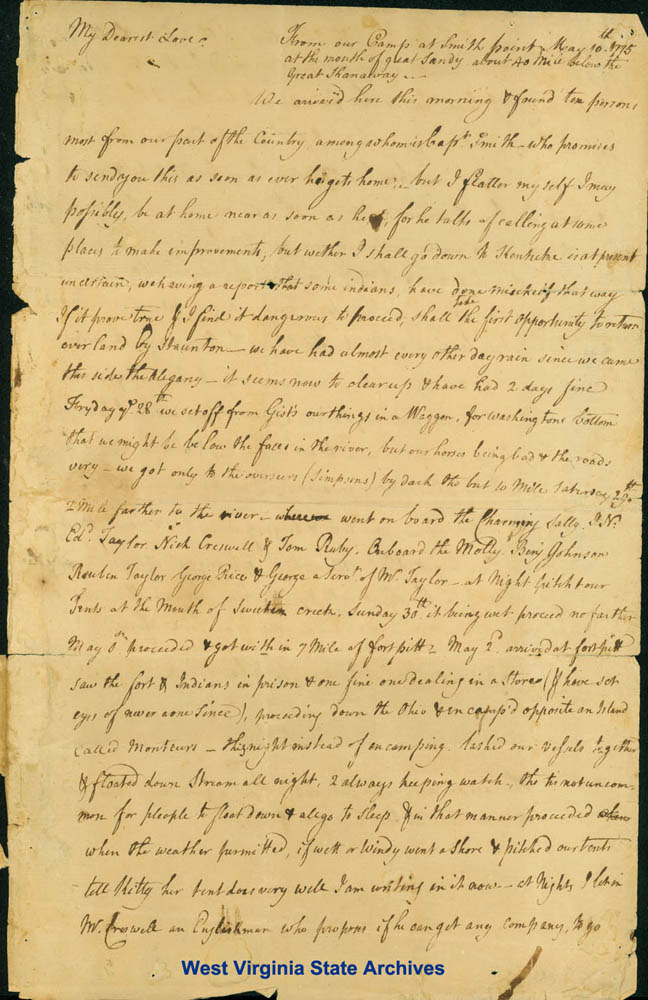 My Dearest Love,
From our Camp at Smith point May 10th 1775
at the mouth of great Sandy about 40 Mile below the
Great Khanaway
We arrived here this morning & found ten persons,
most from our part of the Country among whom is Capt Smith – who promises
to send you this as soon as ever he gets home, but I flatter my self I may
possibly be at home near as soon as he, for he talks of calling at some
places to make improvements, but wether I shall go down to Kentucke is at present
uncertain, we having a report that some indians, have done mischeif that way
If it prove true & I find it dangerous to proceed, shall take the first opportunity to return
over land by Staunton – we have had almost every other day rain since we came
this side the Alegany – it seems now to clear up & have had 2 days fine
Fryday ye 28th we set off from Gist's our things in a Waggon, for washingtons bottom
that we might be below the falls in the river, but our horses being bad & the roads
very – we got only to the overseers (Simpsons) by dark tho but 10 Mile Saturday 29th
2 Mile farther to the river – went on board the Charming Sally, J.N.
Edd Taylor Nick Creswell & Tom Ruby. Onboard the Molly, Benj Johnson
Reuben Taylor George Rice & George a Servt of Mr. Taylor – at Night pitch't our
Tents at the Mouth of creek, Sunday 30th it being wet proceed no farther
May proceeded & got with in 7 Mile of fort pitt – May 2d. arrived at fort pitt
saw the fort & Indians in prison & one fine one dealing in a Store (I have set
eyes of never a one since), proceeding down the Ohio & encamp'd opposite an Island
called Monteurs – this night instead of encamping lashed our vessels together
& floated down Stream all night, 2 always keeping watch, tho tis not uncom-
mon for pleople to float down & all go to sleep, & in that manner proceeded
when the weather permitted, if wett or windy went a Shore & pitched our tents
tell Kitty her tent does very well I am writing in it now – at Nights I let in
Mr. Creswell an Englishman who propons if he can get any company, to go
West Virginia State Archives